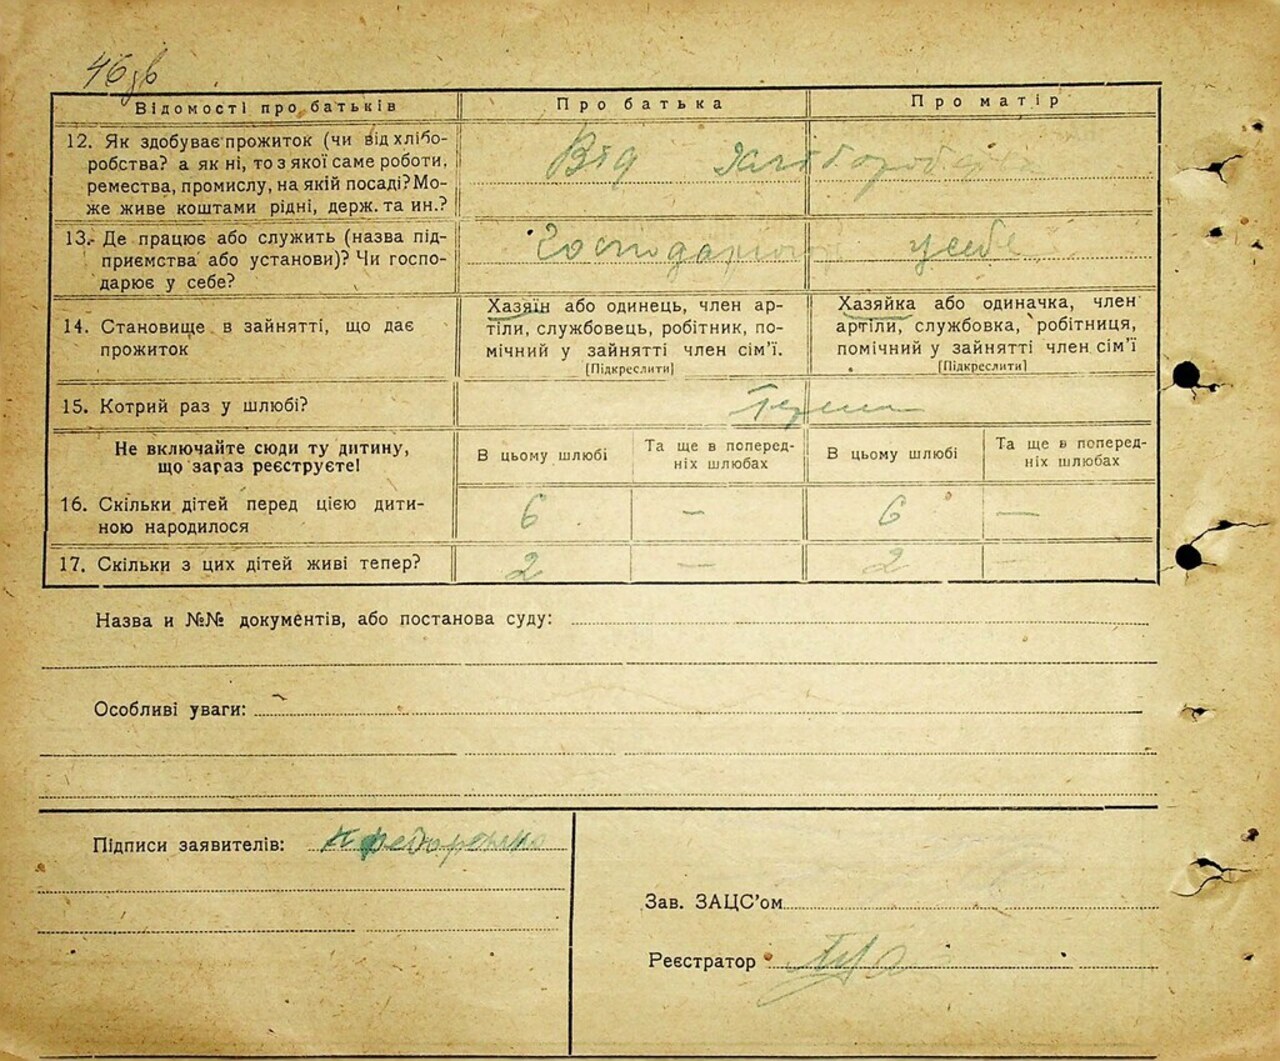 46 зв
Відомості про батьків
Про батька
Про матір
12. Як здобуває прожиток (чи від хлібо-
робства? а як ні, то з якої саме роботи,
ремества, промислу, на якій посаді? Мо-
же живе коштами рідні, держ. та ин.?
Від хліборобства
13. Де працює або служить (назва під-
приємства або установи)? Чи госпо-
дарює у себе?
Господарюют у себе
14. Становище в зайнятті, що дає
прожиток
Хазяїн або одинець, член ар-
тіли, службовець, робітник, по-
мічний у зайнятті член сім’ї.
(Підкреслити)
Хазяйка або одиначка, член
артіли, службовка, робітниця,
помічний у зайнятті член сім’ї
(Підкреслити)
15. Котрий раз у шлюбі?
Не включайте сюди ту дитину,
що зараз реєструєте!
В цьому шлюбі
Та ще в поперед-
ніх шлюбах
В цьому шлюбі
Та ще в поперед-
ніх шлюбах
16. Скільки дітей перед цією дити-
ною народилося
6 — 6 —
17. Скільки з цих дітей живі тепер?
2 — 2 —
Назва и №№ документів, або постанова суду:
Особливі уваги:
Підписи заявителів:
Зав. ЗАЦС’ом
Реєстратор